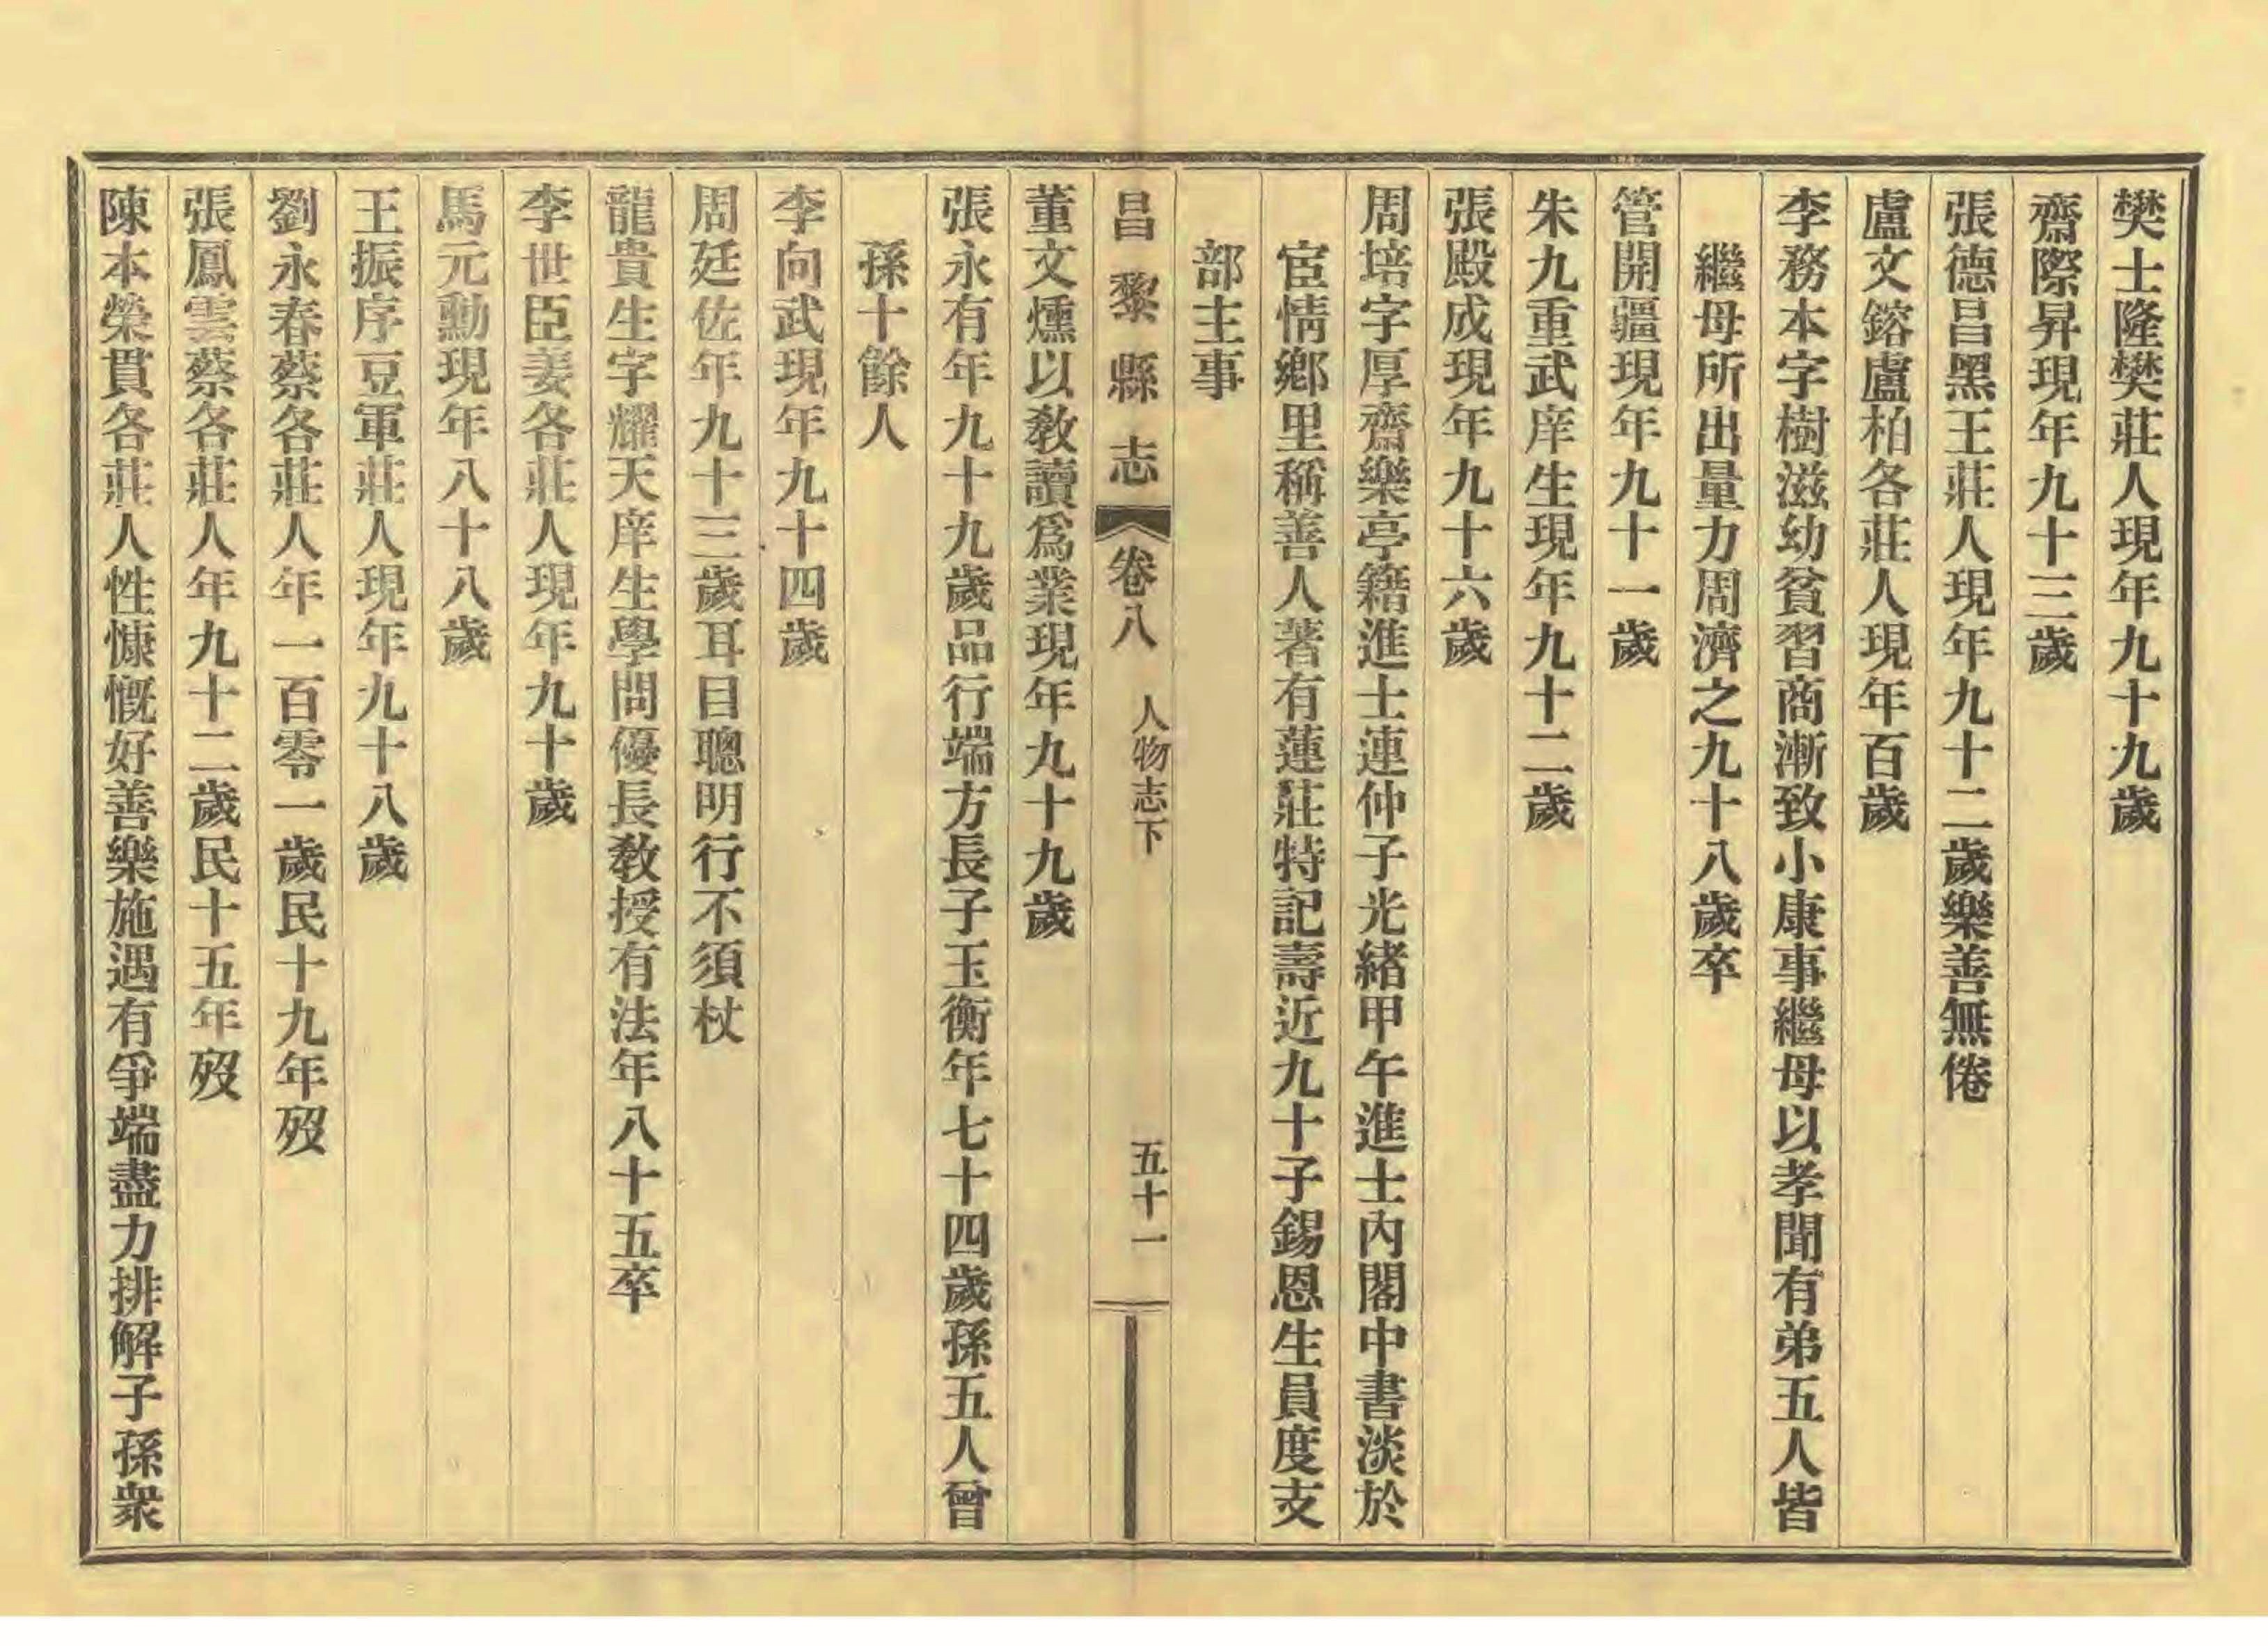 樊士隆樊莊人現年九十九歲
齋際昇現年九十三歲
張德昌黑王莊人現年九十二歲樂善無倦
盧文鎔盧柏各莊人現年百歲
李務本字樹滋幼貧習商漸致小康事繼母以孝聞有弟五人皆
繼母所出量力周濟之九十八歲卒
管開疆現年九十一歲
朱九重武庠生現年九十二歲
張殿成現年九十六歲
周培字厚齋樂亭籍進士連仲子光緒甲午進士內閣中書淡於
宦情鄉里稱善人著有蓮莊特記壽近九十子錫恩生員度支
部主事
昌黎縣志 卷八 人物志下 五十一
董文燻以教讀爲業現年九十九歲
張永有年九十九歲品行端方長子玉衡年七十四歲孫五人曾
孫十餘人
李向武現年九十四歲
周廷佐年九十三歲耳目聰明行不須杖
龍貴生字耀天庠生學問優長教授有法年八十五卒
李世臣姜各莊人現年九十歲
馬元勳現年八十八歲
王振序豆軍莊人現年九十八歲
劉永春蔡各莊人年一百零一歲民十九年歿
張鳳雲蔡各莊人年九十二歲民十五年歿
陳本榮貫各莊人性慷慨好善樂施遇有爭端盡力排解子孫衆